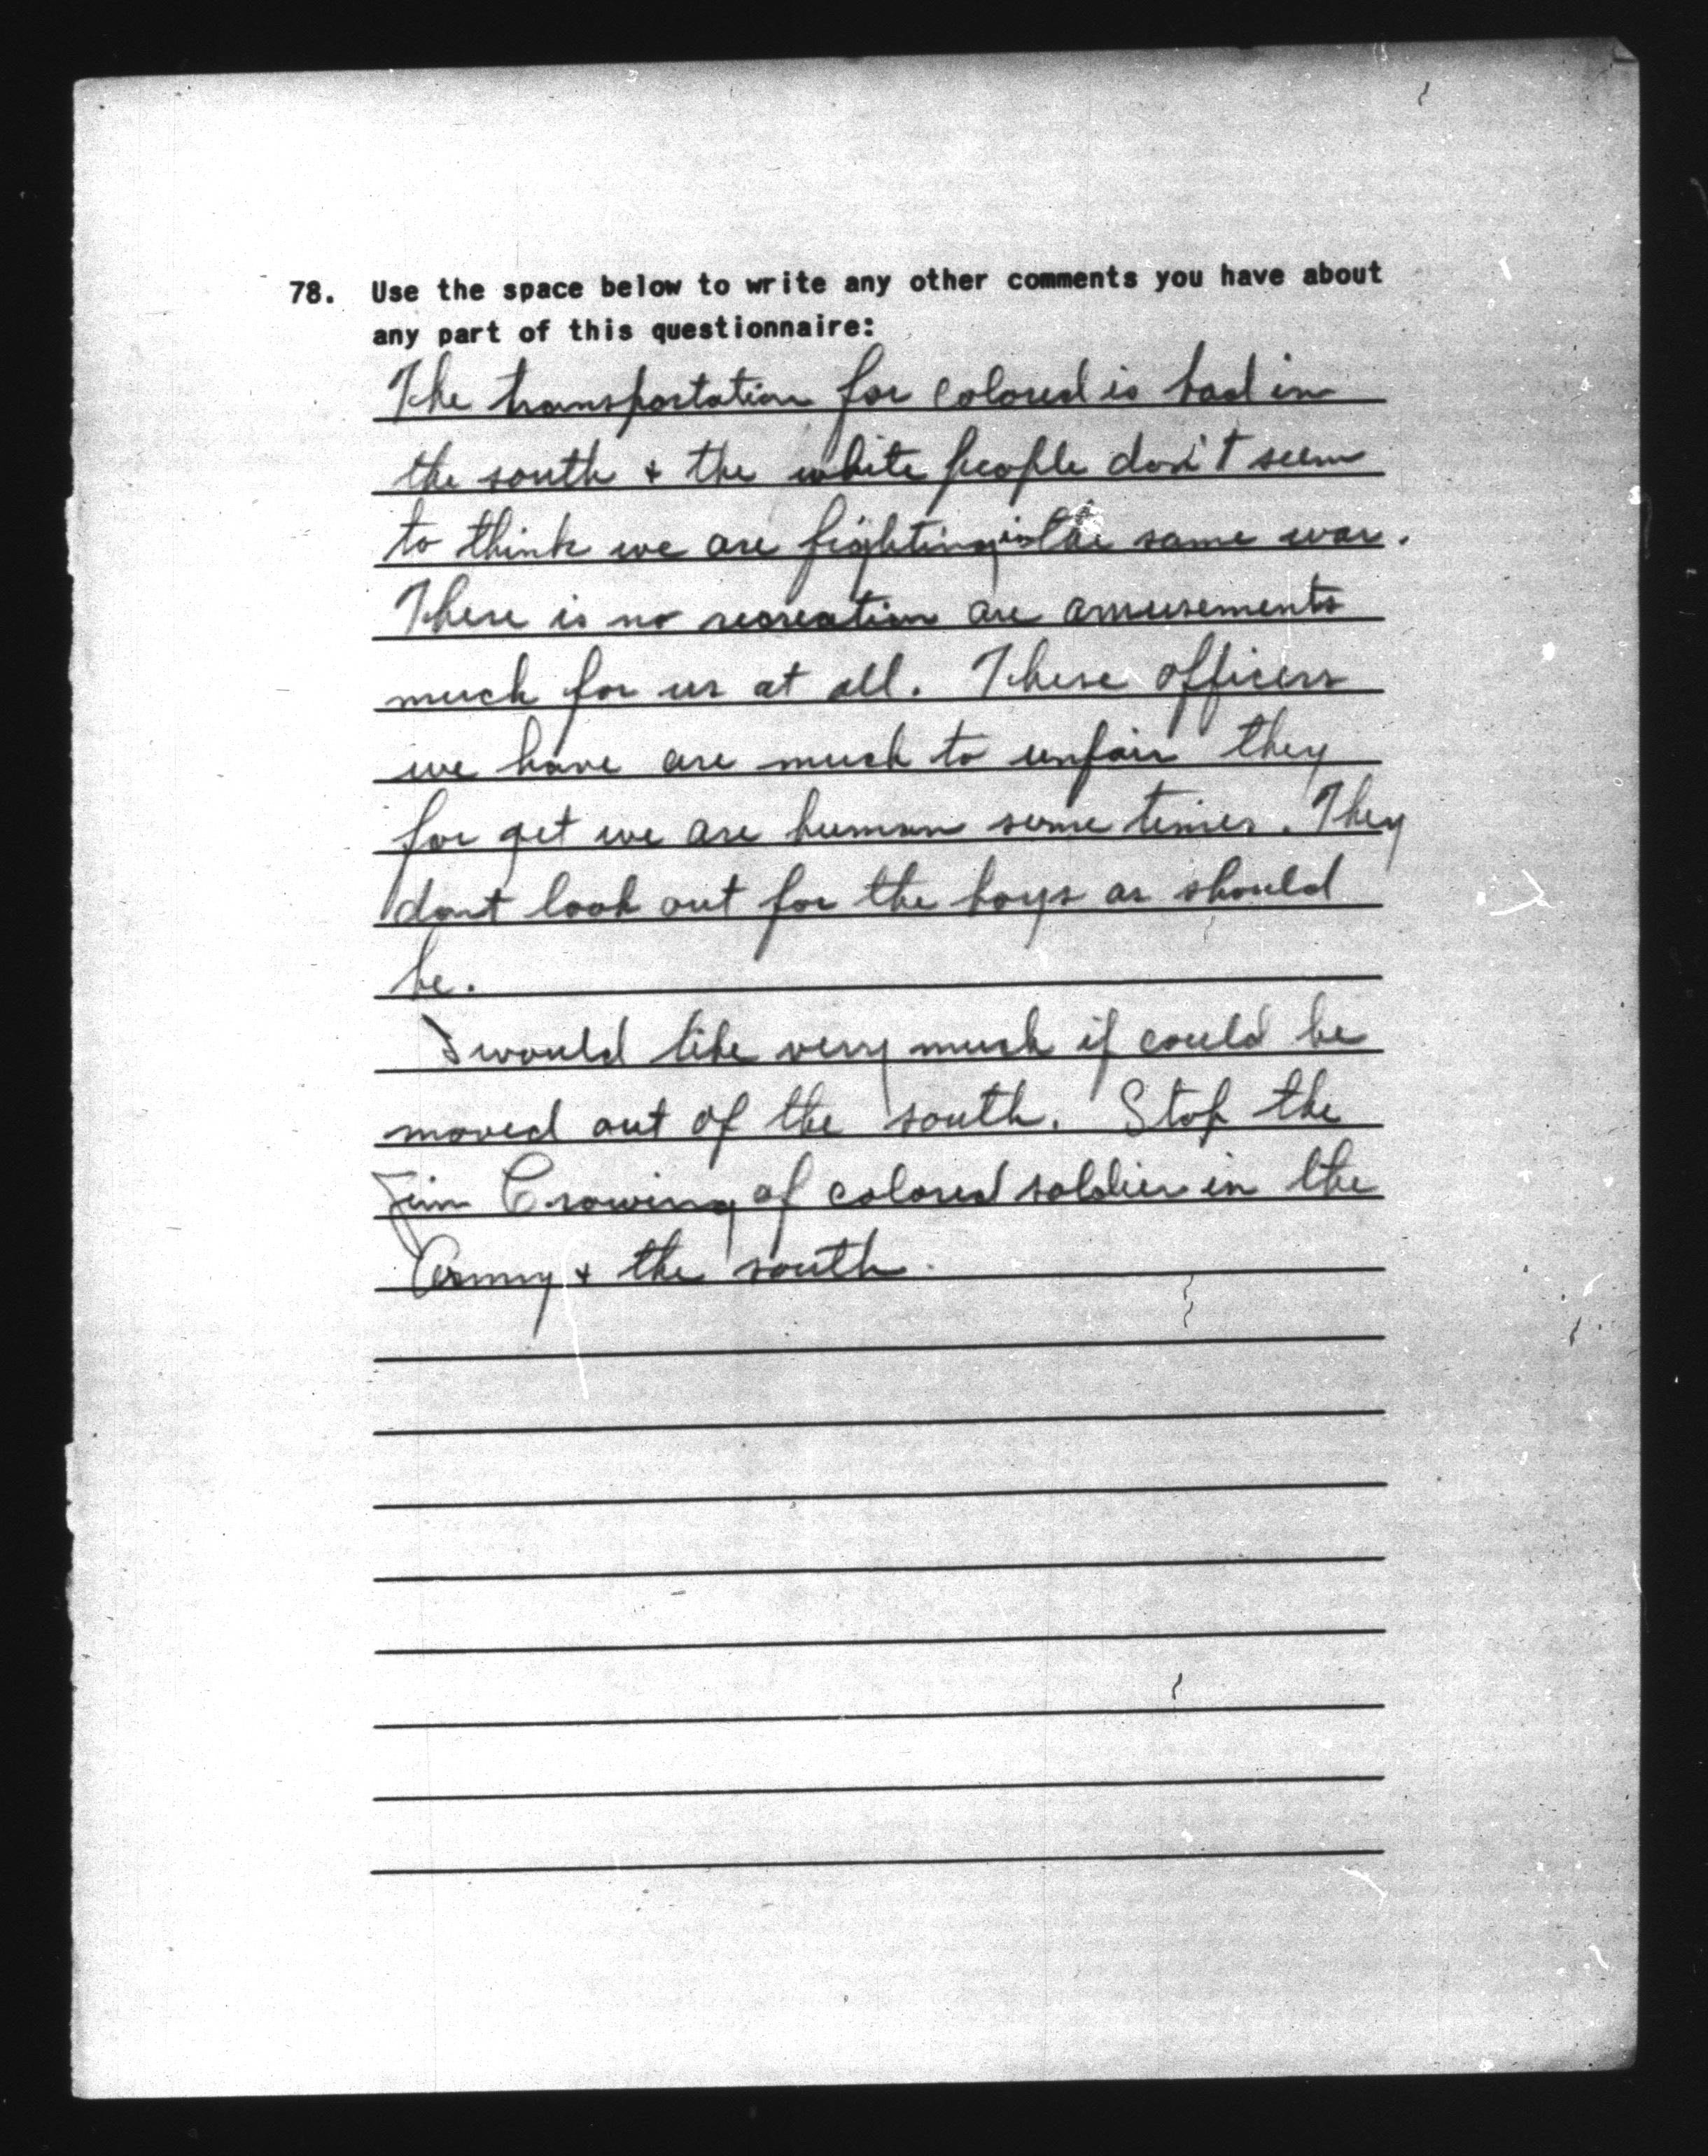 78. Use the space below to write any other comments you have about
any part of this questionnaire:
The transportation for colored is bad in
the south + the white people don't seem
to think we are fighting in the same war.
There is no recreation are amusements
much for us at all. These officers
we have are much to unfair they
for get we are human some times. They
dont look out for the boys as should
be.
I would like very much if could be
moved out of the south. Stop the
Jim Crowing of colored soldier in the
Army + the south.